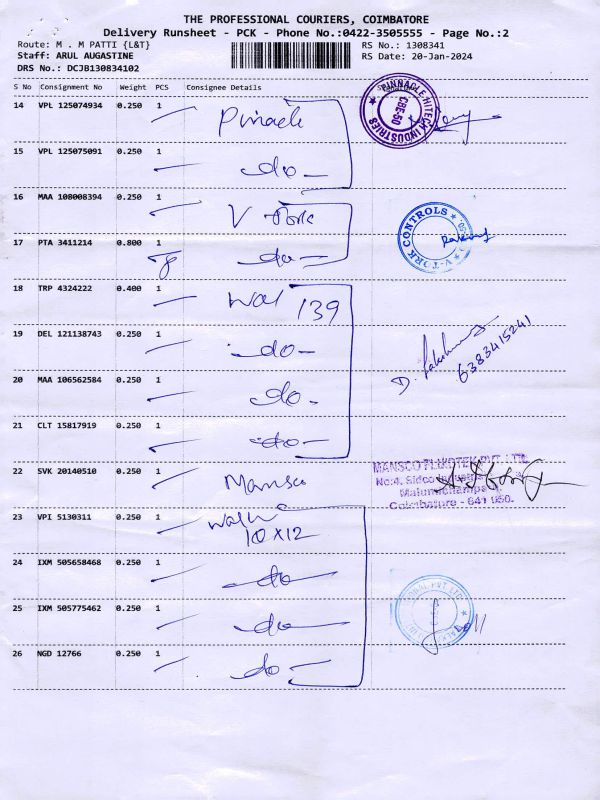 THE PROFESSIONAL COURIERS, COIMBATORE
Delivery Runsheet - PCK - Phone No.:0422-3505555 - Page No.:2
Route: M . M PATTI {L&T}
RS No.: 1308341
Staff: ARUL AUGASTINE
RS Date: 20-Jan-2024
DRS No.: DCJB130834102
S No Consignment No Weight PCS Consignee Details
14 VPL 125074934 0.250 1
PINNACLE HITECH INDUSTRIES
CBE-50
15 VPL 125075091 0.250 1 do
16 MAA 108008394 0.250 1 V
V-TORK CONTROLS
17 PTA 3411214 0.800 1 do
18 TRP 4324222 0.400 1 139
19 DEL 121138743 0.250 1 do
6383415241
20 MAA 106562584 0.250 1 do
21 CLT 15817919 0.250 1 do
22 SVK 20140510 0.250 1 Mansco
MANSCO PVT. LTD.
No:4, Sidco
Coimbatore - 641 050.
23 VPI 5130311 0.250 1
10 X 12
24 IXM 505658468 0.250 1 do
25 IXM 505775462 0.250 1 do
PVT LTD
26 NGD 12766 0.250 1 do